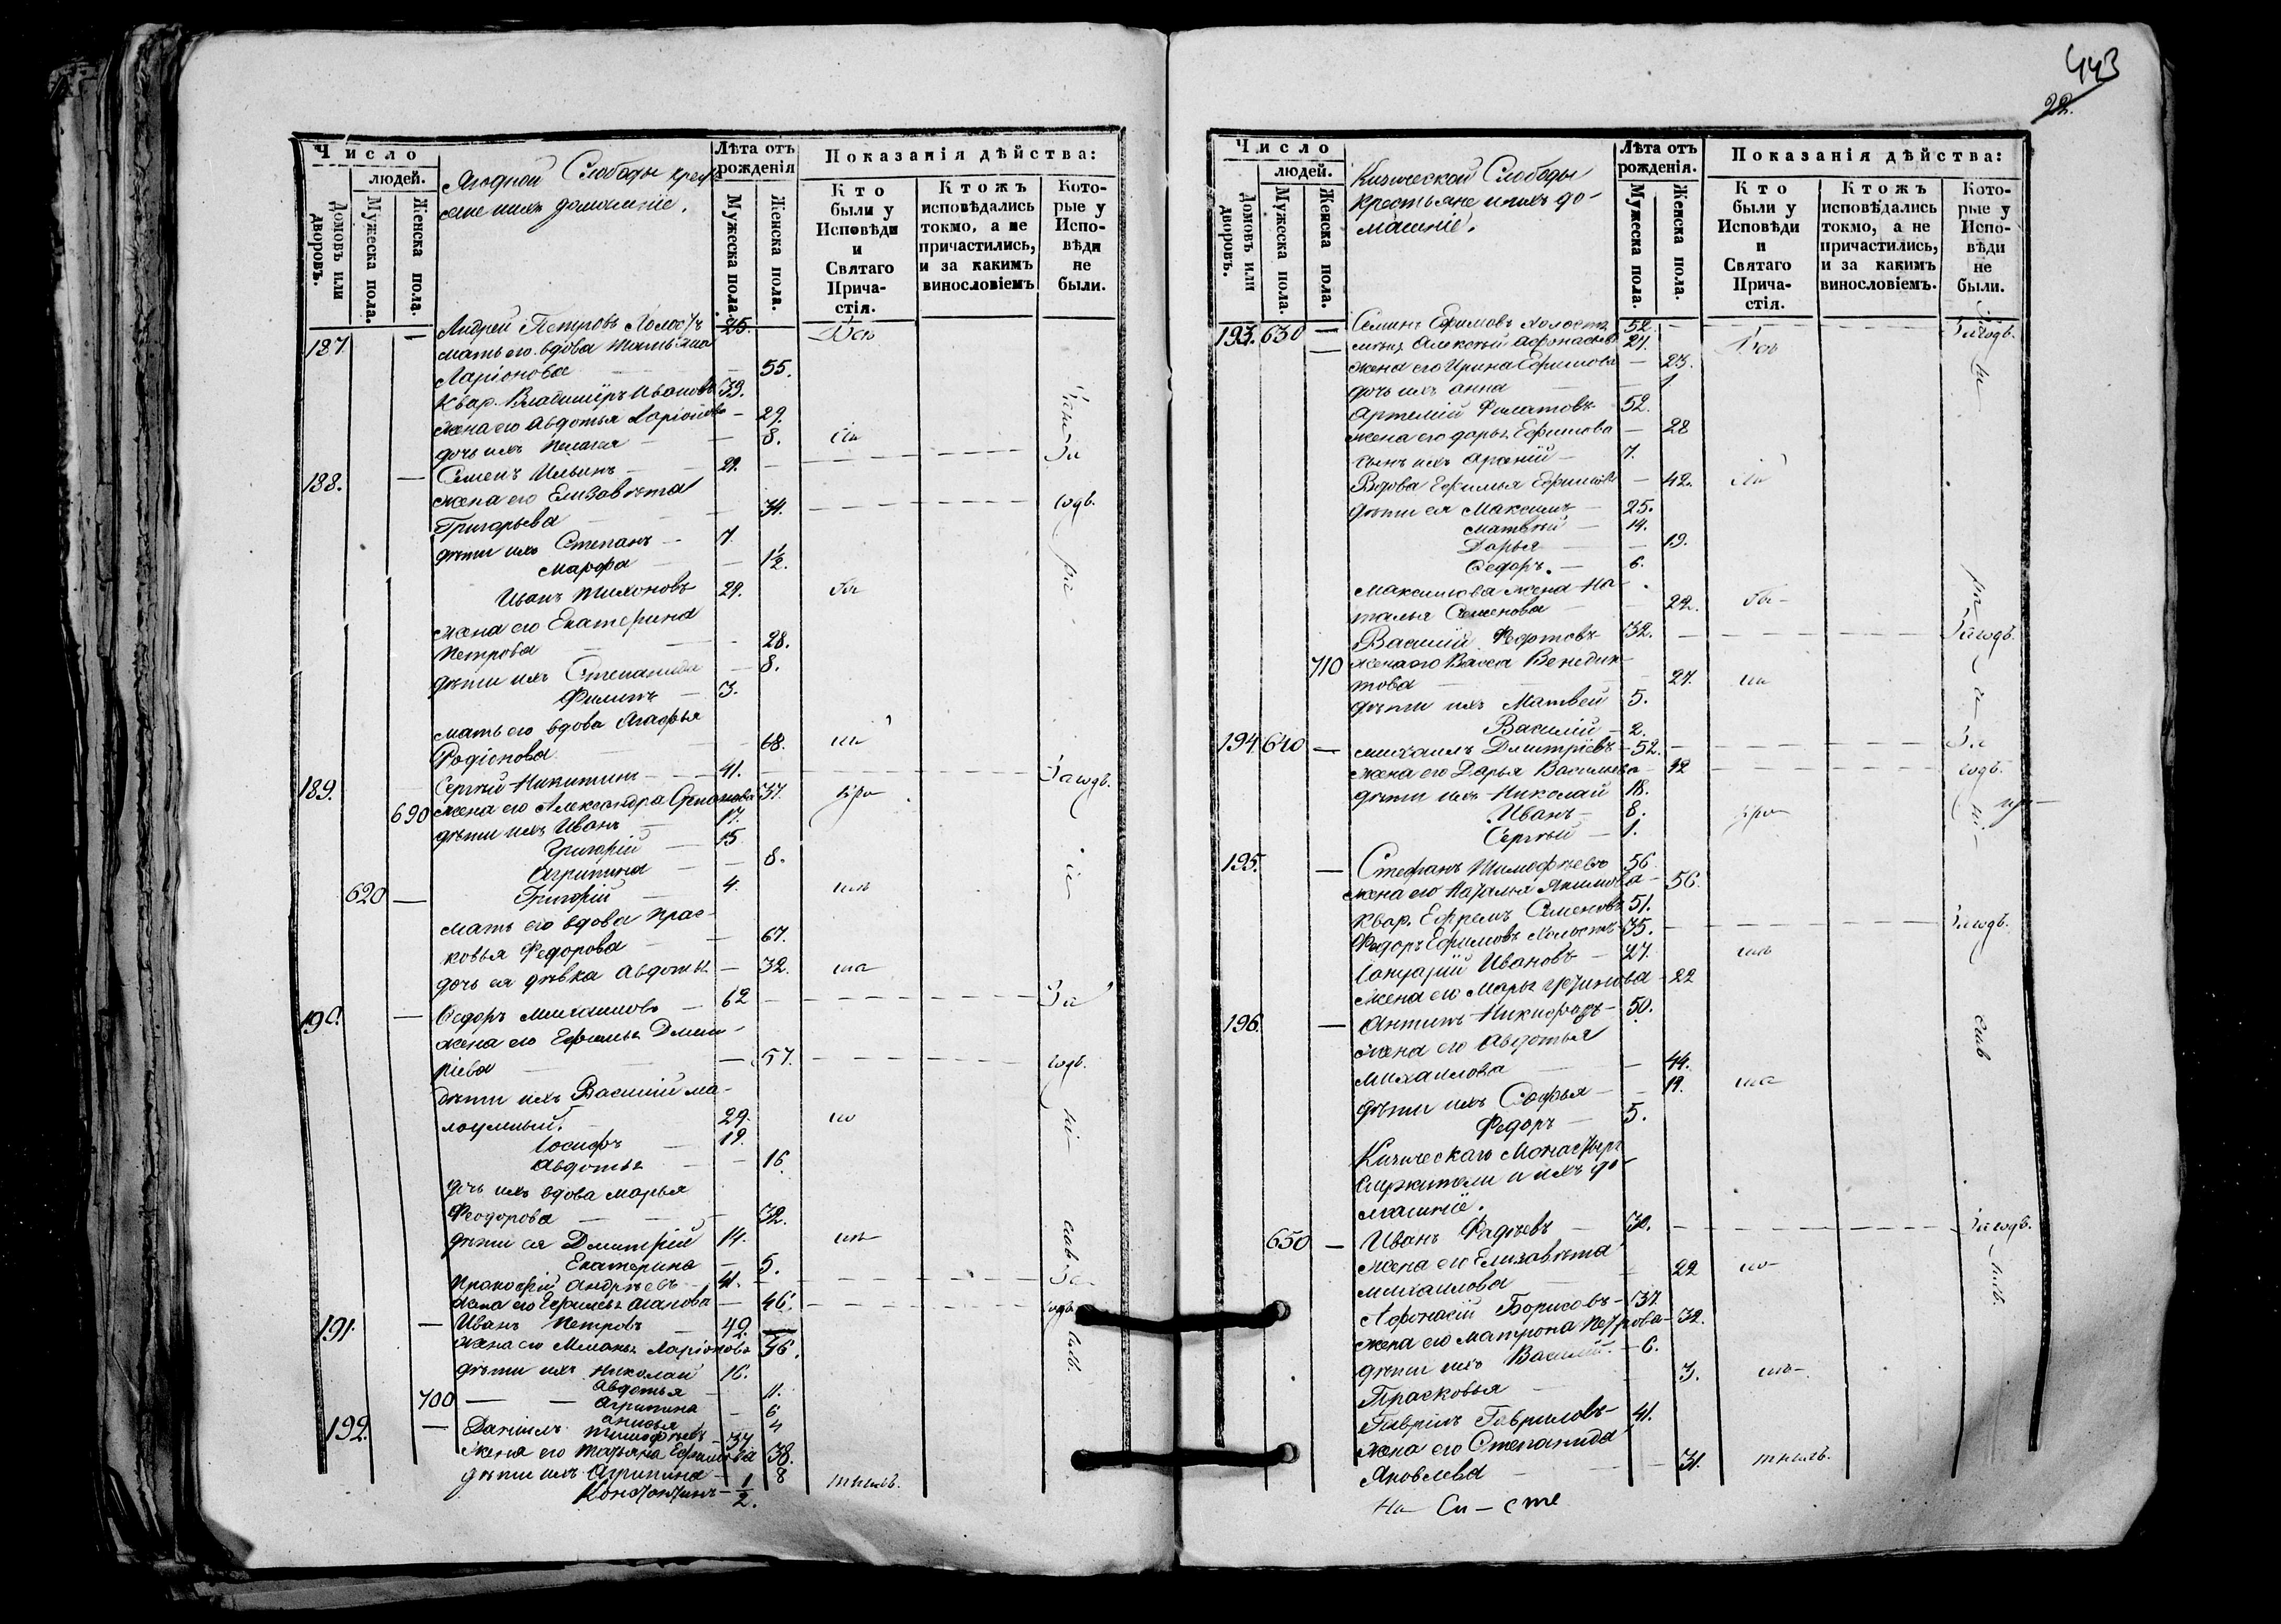 443
22.
Число
людей.
Домовъ или дворовъ.
Мужеска пола.
Женска пола.
Ягодной Слободы кресть
яне и ихъ домашніе.
Лѣта отъ рожденія
Мужеска пола.
Женска пола.
Показанія дѣйства:
Кто были у Исповѣди и Святаго Причастія.
Ктожъ исповѣдались токмо, а не причастились, и за какимъ винословіемъ
Которые у Исповѣди не были.
187 — Андрей Петровъ Холостъ 25.
мать его вдова Татьяна
Ларіонова — 55.
Квар. Владиміръ Ивановъ 39.
жена его Авдотья Ларіонова — 29.
дочь ихъ Пелагея — 8.
188. — Семенъ Ильинъ — 29. За
жена его Елизавѣта
Григорьева — 34. годъ.
дѣти ихъ Степанъ — 7.
Марфа — 1½.
Иванъ Тихоновъ 29.
жена его Екатерина
Петрова — 28.
дѣти ихъ Степанида — 8.
Филипъ — 3.
мать его вдова Агафья
Родіонова — 68.
189. Сергѣй Никитинъ — 41. За годъ.
690 жена его Александра Степанова 37.
дѣти ихъ Иванъ — 17.
Григорій — 15
Агрипина — 8.
620 — Григорій — 4.
мать его вдова Прас-
ковья Федорова — 67.
дочь ея дѣвка Авдотья — 32.
190. — Федоръ Михаиловъ — 62 За
жена его Ефимья Дмит-
ріева — 57. годъ.
дѣти ихъ Василій ма-
лоумный. 29.
Іосифъ — 19.
Авдотья — 16.
дочь ихъ вдова Марья
Феодорова — 32.
дѣти ея Дмитрій 14.
Екатерина — 5.
Прокофій Андрѣевъ — 41. За
жена его Ефимья Агапова — 46. годъ
191. — Иванъ Петровъ — 42.
жена его Меланья Ларіонова 46.
дѣти ихъ Николай 16.
Авдотья — 11.
700 — Агрипина — 6
Анисья 4
192. — Даніилъ Тимофѣевъ — 37
жена его Татьяна Ефимова 38.
дѣти ихъ Агрипина — 8
Константинъ — ½.
Число
людей.
Домовъ или дворовъ.
Мужеска пола.
Женска пола.
Кизической Слободы
крестьяне и ихъ до-
машніе.
Лѣта отъ рожденія.
Мужеска пола.
Женска пола.
Показанія дѣйства:
Кто были у Исповѣди и Святаго Причастія.
Ктожъ исповѣдались токмо, а не причастились, и за какимъ винословіемъ.
Которые у Исповѣди не были.
193. 630 — Семинъ Ефимовъ холостъ 52. За годъ.
— Алексѣй Афонасьевъ 27.
жена его Ирина Ефимова — 23.
дочь ихъ Анна — 1
Артемій Филатовъ 52.
жена его Дарья Ефимова — 28
сынъ ихъ Арсеній — 7.
Вдова Ефимья Ефимова — 42.
дѣти ея Максимъ — 25.
Матвѣй — 14.
Дарья — 19.
Федоръ. — 6.
Максимова жена На-
талья Семенова 22.
Василій 32. За годъ.
710 жена его Васса Венедик-
това — 27.
дѣти ихъ Матвей 5.
Василій — 2.
194 640 — Михаилъ Дмитріевъ — 52. За
жена его Дарья Васильева — 42 годъ.
дѣти ихъ Николай 18.
Иванъ — 8.
Сергѣй — 1.
195. — Стефанъ Тимофѣевъ 56
жена его Наталья Якимова — 56.
Квар. Ефремъ Семеновъ 51.
Федоръ Ефимовъ Холостъ 35. За годъ.
Іануарій Ивановъ — 27.
жена его Марья — 22
196. — Антипъ Никифоровъ — 50.
жена его Авдотья
Михаилова — 44.
дѣти ихъ Софья — 19.
Федоръ — 5.
Кизическаго Монастыря
служители и ихъ до-
машніе.
650 — Иванъ Фадѣевъ — 30. За годъ.
жена его Елизавѣта
Михаилова — 22
Афонасій Борисовъ — 37.
жена его Матрона Петрова — 32.
дѣти ихъ Василій — 6.
Прасковья — 3.
Гаврилъ Гавриловъ — 41.
жена его Степанида
Яковлева — 31.